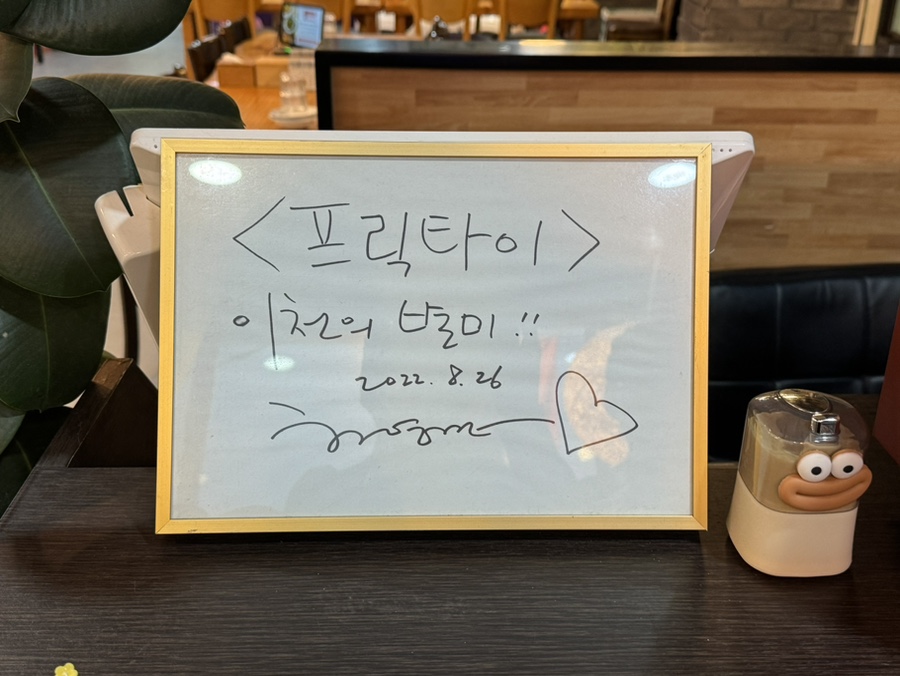 <프릭타이>
이천의 별미!!
2022. 8. 26